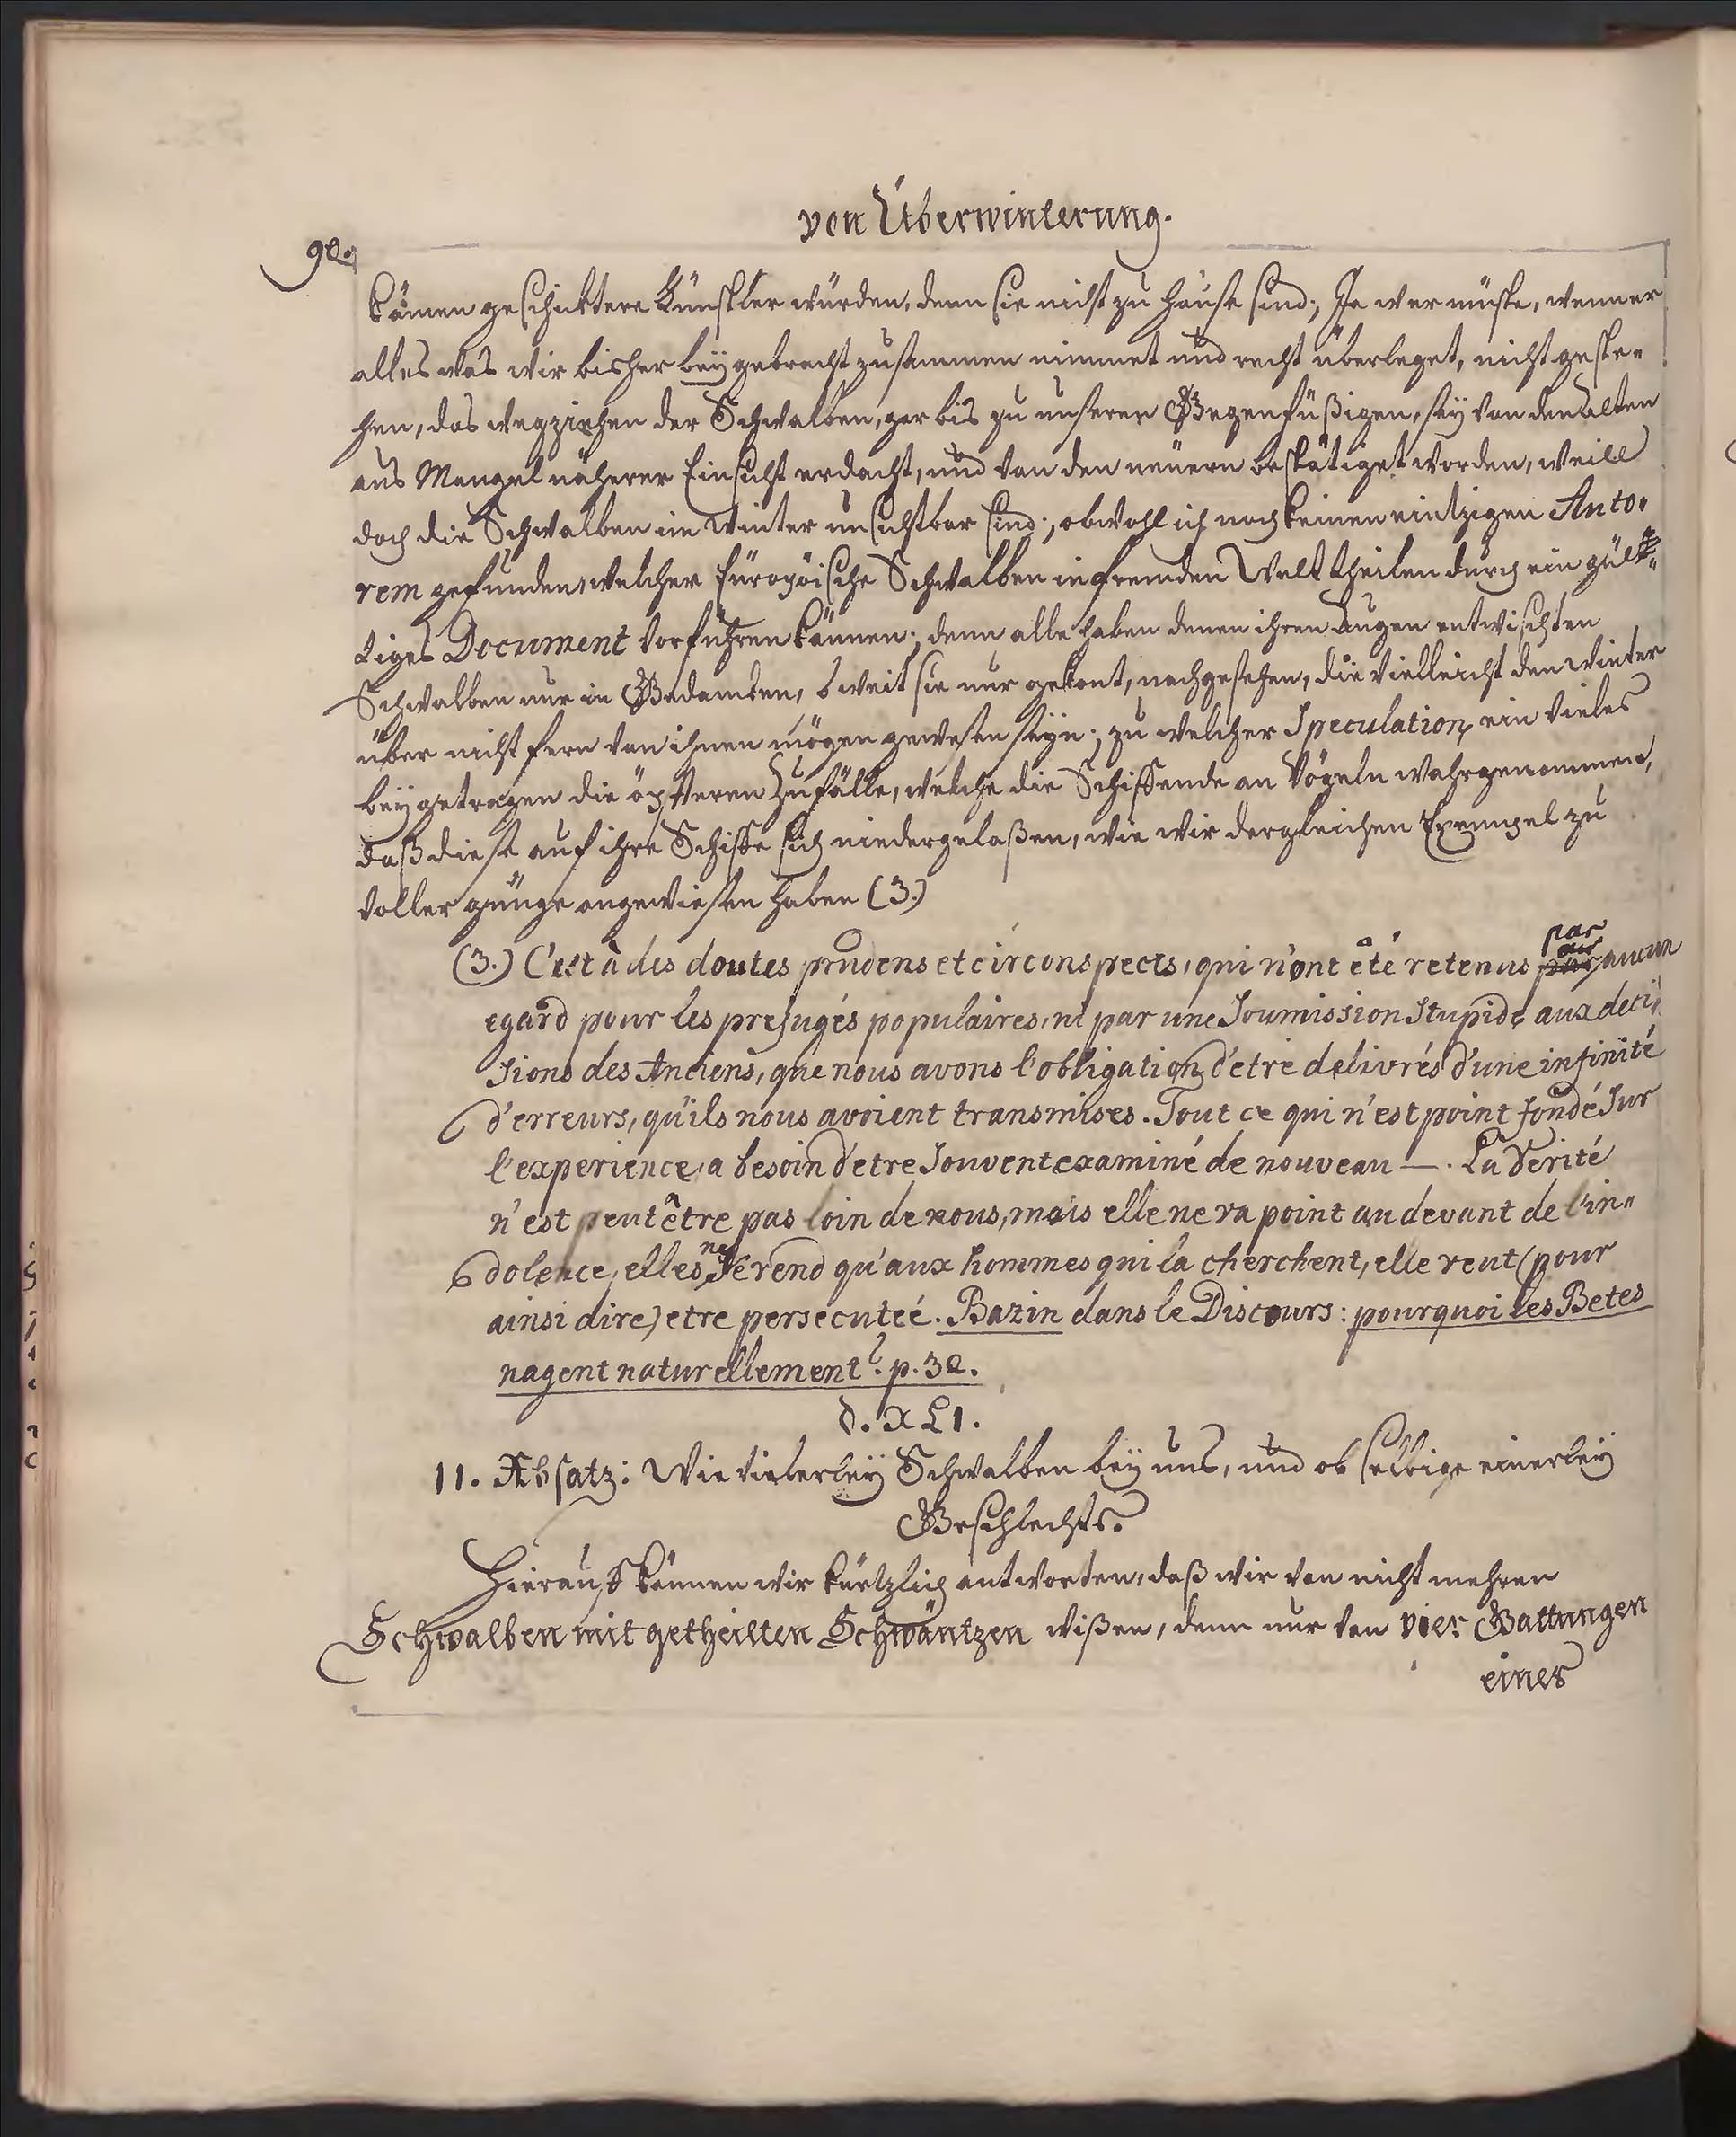 von Überwinterung.
90.
kämen geschicktere Künstler würden, denn sie nicht zu Hause sind; Ja wer müste, wenn er
alles was wir bisher beygebracht zusammen nimmet und recht überleget, nicht geste-
hen, das wegziehen der Schwalben, gar bis zu unseren Gegenfüßigen, sey von den alten
aus Mangel näherer Einsicht erdacht, und von den neüern bestätiget worden, weill
doch die Schwalben im Winter unsichtbar sind; obwohl ich noch keinen eintzigen Auto-
rem gefunden, welcher Europäische Schwalben in fremden Welt theilen durch ein gül-
tiges Document vorführen können; denn alle haben denen ihren Augen entwischten
Schwalben nur in Gedancken, so weit sie nur gekont, nachgesehen, die vielleicht den Winter
über nicht fern von ihnen mögen gewesen seyn; zu welcher Speculation ein vieles
beygetragen die öffteren Zufälle, welche die Schiffende an Vögeln wahrgenommen,
daß diese auf ihre Schiffe sich niedergelaßen, wie wir dergleichen Exempel zu
voller gnüge angewiesen haben (3.)
(3.) C'est à des doutes prudens et circonspects, qui n'ont été retenus par aucun
egard pour les prejugés populaires, ni par une Soumission Stupide aux deci-
sions des Anciens, que nous avons l'obligation d'etre delivrés d'une infinité
d'erreurs, qu'ils nous avoient transmises. Tout ce qui n'est point fondé sur
l'experience, a besoin d'etre Souvent examiné de nouveau —. La Verité
n'est peut être pas loin de nous, mais elle ne va point au devant de l'in-
dolence, elles ne Se rend qu'aux hommes qui la cherchent, elle veut (pour
ainsi dire) etre persecuteé. Bazin dans le Discours: pourquoi les Betes
nagent naturellement? p. 32.
§. XLI.
11. Absatz: Wie vielerley Schwalben bey uns, und ob selbige einerley
Geschlechts.
Hierauf können wir kürtzlich antworten, daß wir von nicht mehren
Schwalben mit getheilten Schwäntzen wißen, denn nur von vier Gattungen
eines